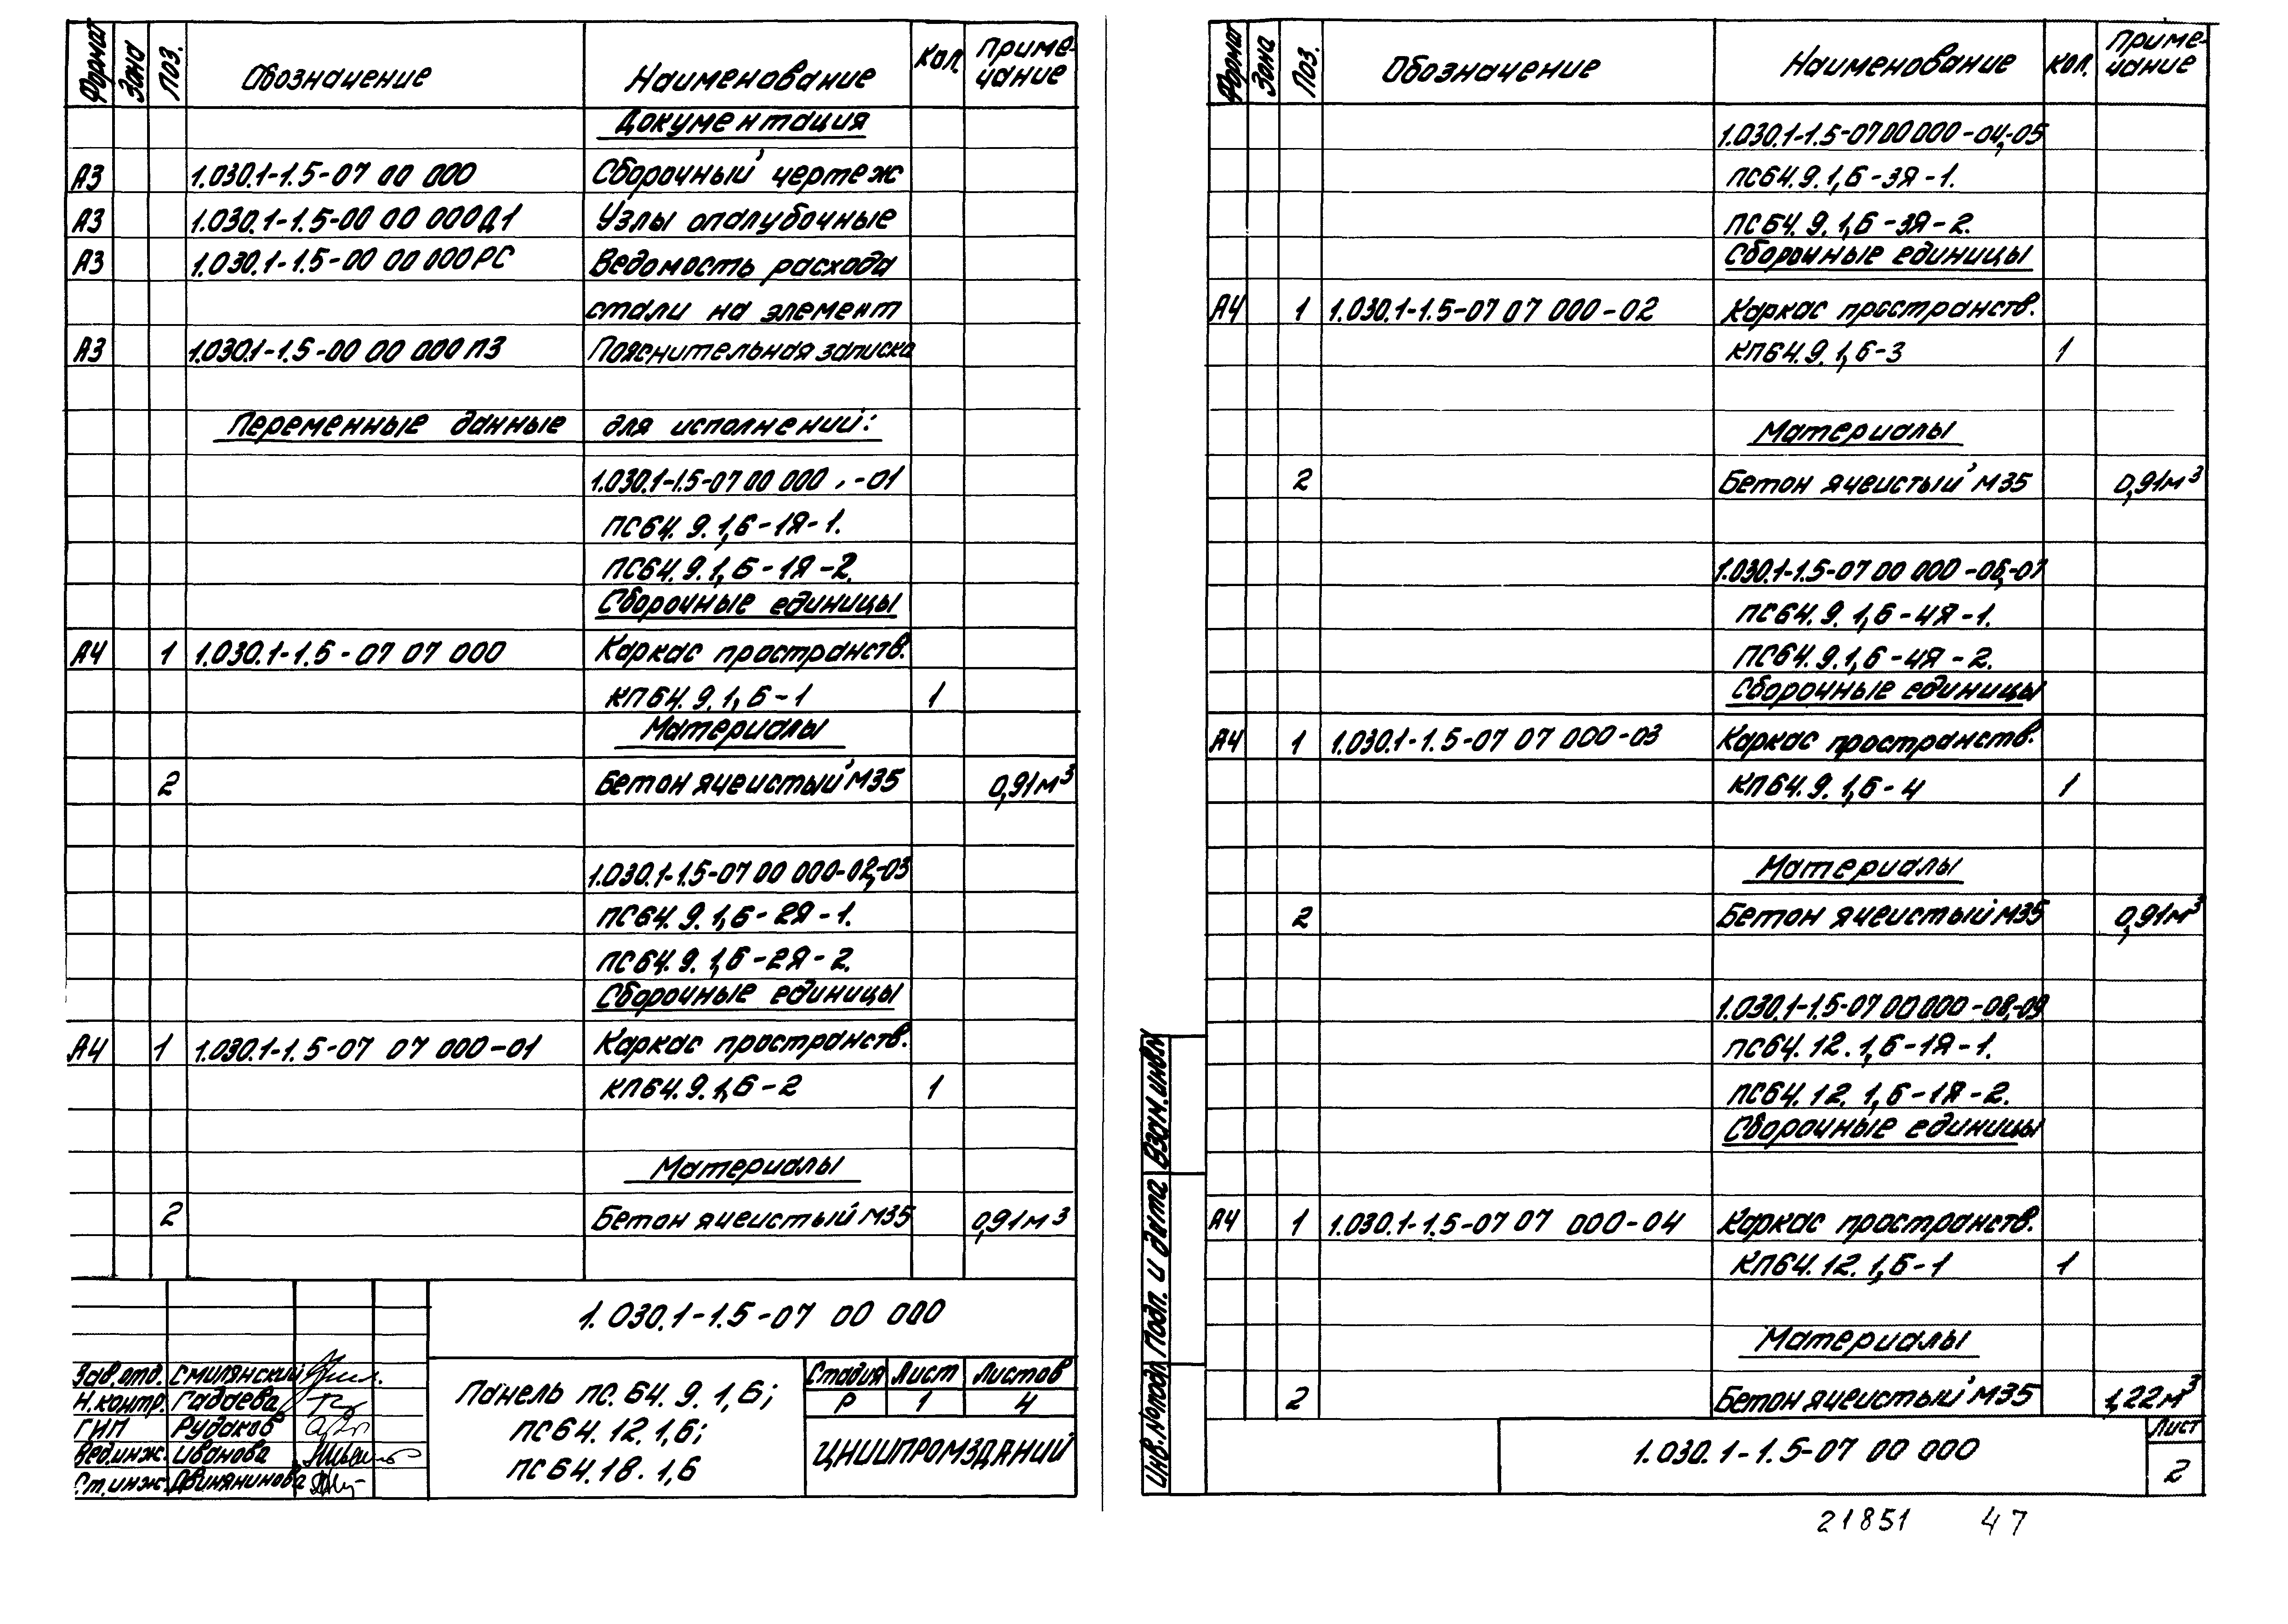 Формат Зона Поз. Обозначение Наименование Кол. Приме-
чание
Документация
А3 1.030.1-1.5-07 00 000 Сборочный чертеж
А3 1.030.1-1.5-00 00 000Д1 Узлы опалубочные
А3 1.030.1-1.5-00 00 000РС Ведомость расхода
стали на элемент
А3 1.030.1-1.5-00 00 000ПЗ Пояснительная записка
Переменные данные для исполнений:
1.030.1-1.5-07 00 000, -01
ПС64.9.1,6-1Я-1.
ПС64.9.1,6-1Я-2.
Сборочные единицы
А4 1 1.030.1-1.5-07 07 000 Каркас пространств.
КП64.9.1,6-1 1
Материалы
2 Бетон ячеистый М35 0,91м³
1.030.1-1.5-07 00 000-02,-03
ПС64.9.1,6-2Я-1.
ПС64.9.1,6-2Я-2.
Сборочные единицы
А4 1 1.030.1-1.5-07 07 000-01 Каркас пространств.
КП64.9.1,6-2 1
Материалы
2 Бетон ячеистый М35 0,91м³
1.030.1-1.5-07 00 000
Зав.отд. Смилянский
Н.контр. Гадаева
ГИП Рудаков
Вед.инж. Иванова
Ст.инж. Двинянинова
Панель ПС.64.9.1,6;
ПС64.12.1,6;
ПС64.18.1,6
Стадия Лист Листов
Р 1 4
ЦНИИПРОМЗДАНИЙ
Формат Зона Поз. Обозначение Наименование Кол. Приме-
чание
1.030.1-1.5-07 00 000-04,-05
ПС64.9.1,6-3Я-1.
ПС64.9.1,6-3Я-2.
Сборочные единицы
А4 1 1.030.1-1.5-07 07 000-02 Каркас пространств.
КП64.9.1,6-3 1
Материалы
2 Бетон ячеистый М35 0,91м³
1.030.1-1.5-07 00 000-06,-07
ПС64.9.1,6-4Я-1.
ПС64.9.1,6-4Я-2.
Сборочные единицы
А4 1 1.030.1-1.5-07 07 000-03 Каркас пространств.
КП64.9.1,6-4 1
Материалы
2 Бетон ячеистый М35 0,91м³
1.030.1-1.5-07 00 000-08,-09
ПС64.12.1,6-1Я-1.
ПС64.12.1,6-1Я-2.
Сборочные единицы
А4 1 1.030.1-1.5-07 07 000-04 Каркас пространств.
КП64.12.1,6-1 1
Материалы
2 Бетон ячеистый М35 1,22м³
1.030.1-1.5-07 00 000
Лист
2
Инв.№подл. Подп. и дата Взам.инв.№
21851 47